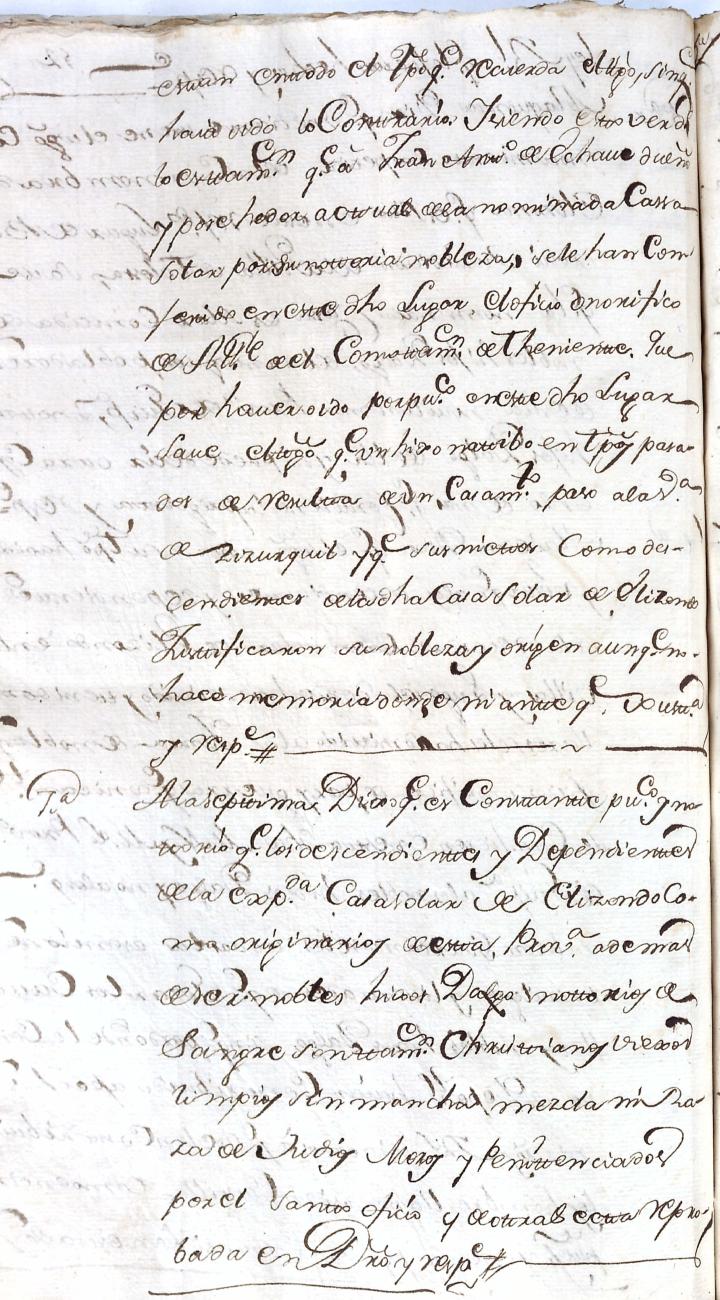 estan en todo el tpo q.e recuerda el tgo, sin q.e
haia oido lo Contrario. Siendo esto verd.
lo es tam.vn q.e a Fran. Ant.o de Echaue dueño
y posehedor actual de la nominada Cassa
Solar por su notoria nobleza, se le han Con
ferido en este dho Lugar, el oficio onorifico
de Alc.de del Como tam.vn de Theniente. Que
por hauer oido por pu.co en este dho Lugar
Saue el tgo q.e vn hixo natibo en tpos pasa-
dos de resulta de vn Casam.to paso a la V.a
de Zizurquil y q.e sus nietos Como des-
cendientes de la dha Casa Solar de Elizondo
Justificaron su nobleza y origen aunq.e no-
hace memoria donde ni ante q.e Justi.a
y resp.e
7.a A la septima Dixo q.e es Constante pu.co y no-
torio q.e los descendientes y Dependientes
de la exp.da Casa solar de Elizondo Co-
mo originarios de esta Prov.a ademas
de ser nobles hixos Dalgo notorios de
Sangre son tam.vn Christianos viexos
limpios sin mancha mezcla ni Ra-
za de Judios Moros y Penitenciados
por el Santo oficio y de otra secta repro-
bada en Dro y resp.e